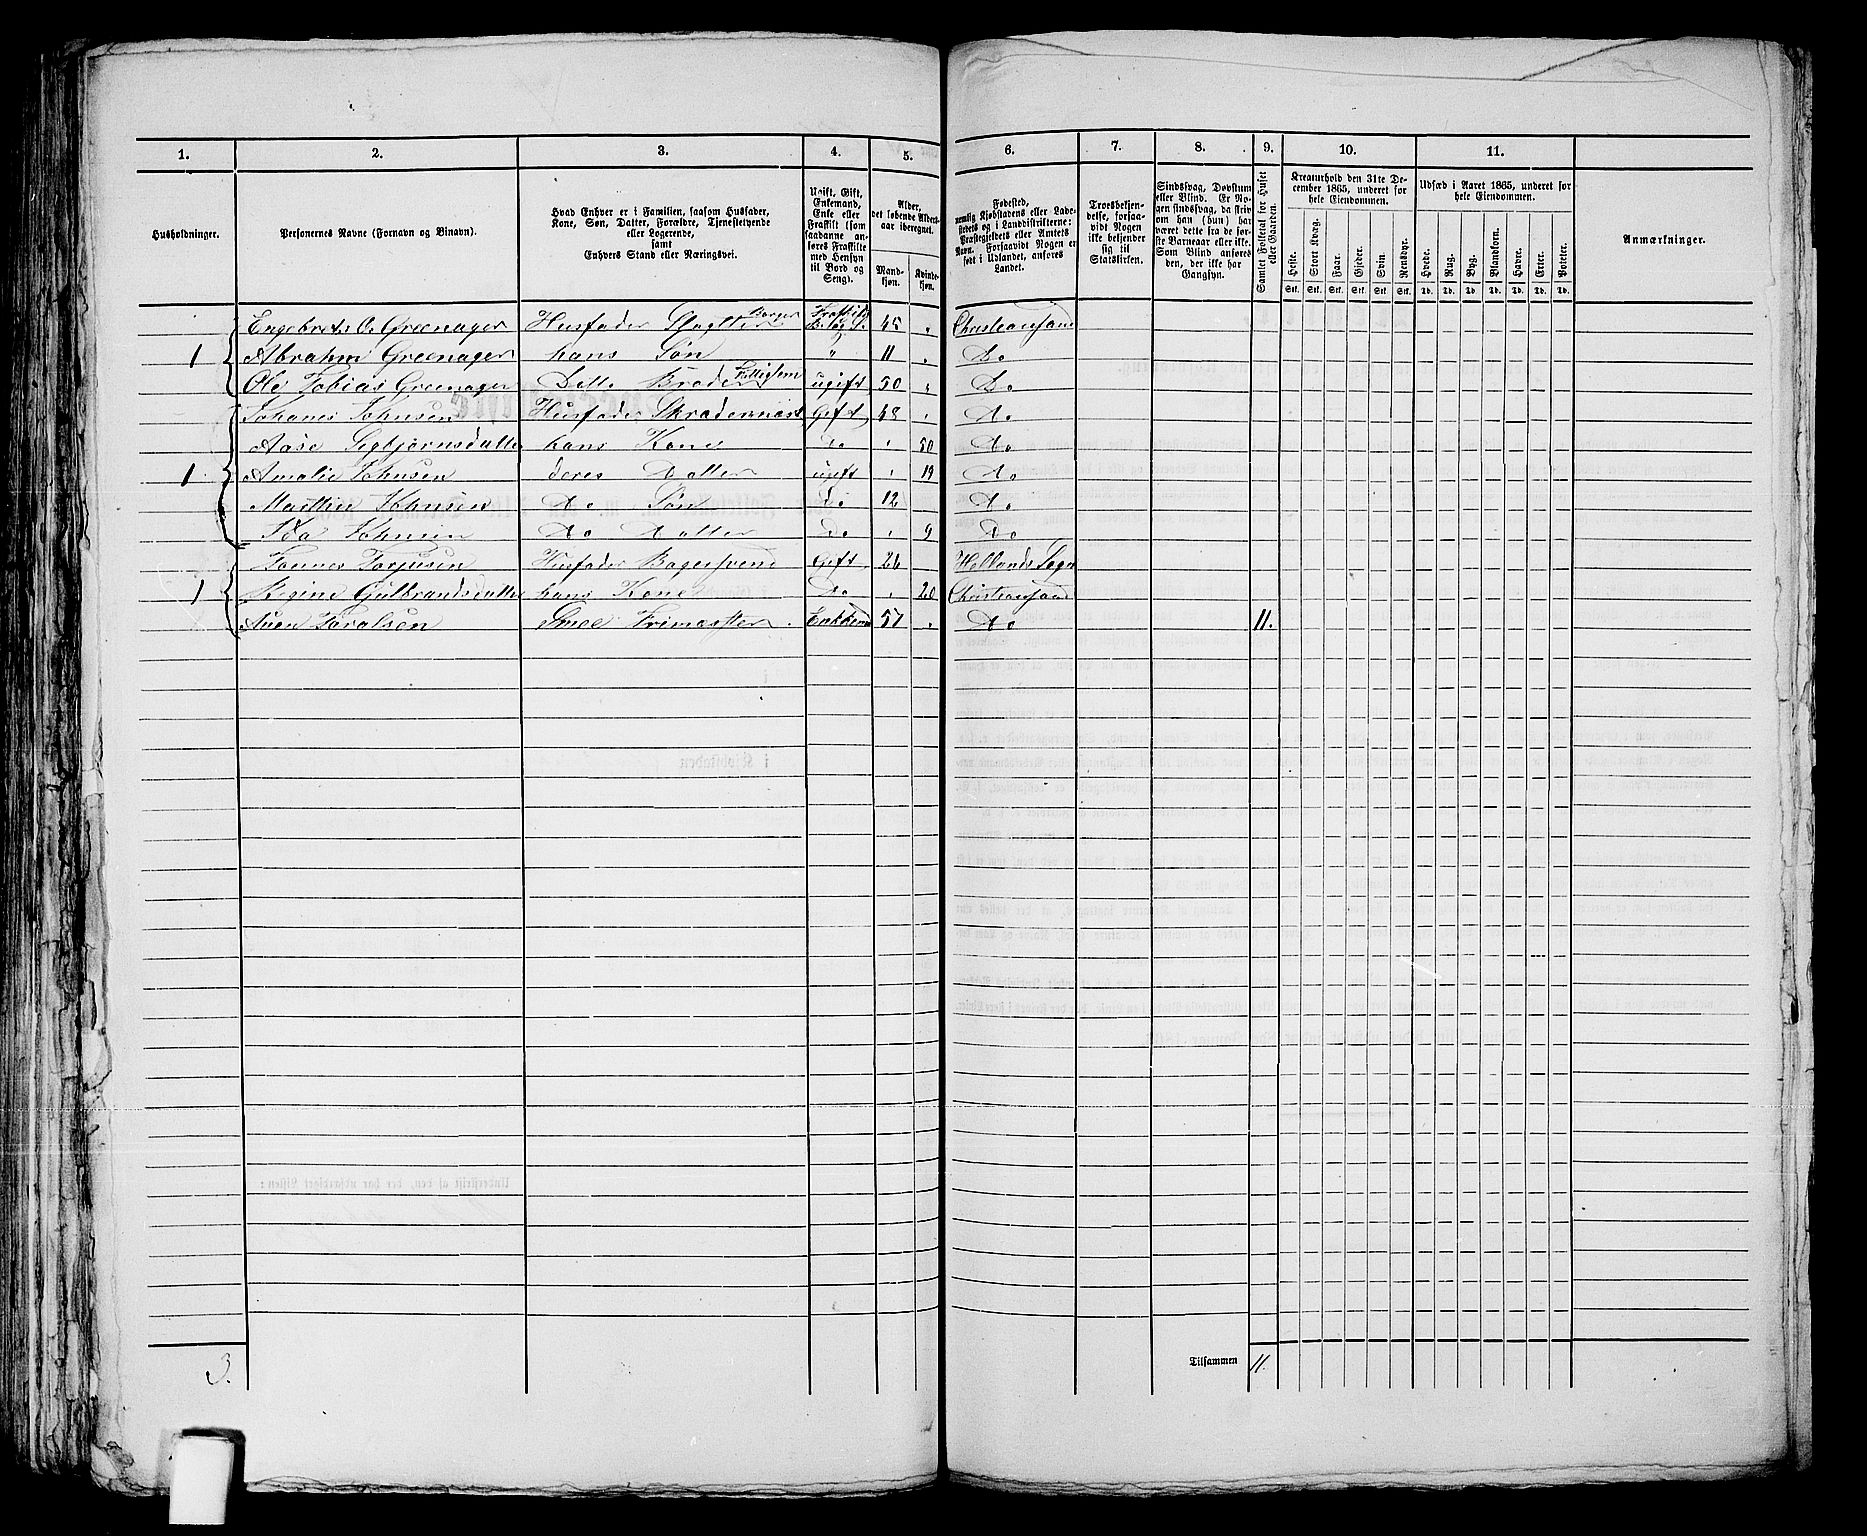 1. 2. 3. 4. 5. 6. 7. 8. 9. 10. 11.
Husholdninger.
Personernes Navne (Fornavn og Binavn).
Hvad Enhver er i Familien, saasom Husfader,
Kone, Søn, Datter, Forældre, Tjenestetyende
eller Logerende,
samt
Enhvers Stand eller Næringsvei.
Ugift, Gift,
Enkemand,
Enke eller
Fraskilt (som
saadanne an-
føres Fraskilte
med Hensyn
til Bord og
Seng).
Alder,
det løbende Alders-
aar iberegnet.
Mand-
kjøn.
Kvinde-
kjøn.
Fødested,
nemlig Kjøbstadens eller Lade-
stedets og i Landdistrikterne:
Præstegjeldets eller Amtets
Navn. Forsaavidt Nogen er
født i Udlandet, anføres
Landet.
Troesbekjen-
delse, forsaa-
vidt Nogen
ikke bekjender
sig til
Statskirken.
Sindssvag, Døvstum
eller Blind. Er No-
gen sindssvag, da skriv
om han (hun) har
været dette fra de før-
ste Barneaar eller ikke.
Som Blind anføres
den, der ikke har
Gangsyn.
Samlet Folketal for Huset
eller Gaarden.
Kreaturhold den 31te De-
cember 1865, underet for
hele Eiendommen.
Heste. Stort Kvæg. Faar. Gjeder. Svin. Rensdyr.
Stk. Stk. Stk. Stk. Stk. Stk.
Udsæd i Aaret 1865, underet for
hele Eiendommen.
Hvede. Rug. Byg. Blandkorn. Havre. Erter. Poteter.
Td. Td. Td. Td. Td. Td. Td.
Anmærkninger.
Borger
Engebret O. Greenager Husfader Slagter Fraskilt B. og S. 45 " Christiansand
1 Abrahm Greenager hans Søn " 11 " Do
Ole Tobias Greenager Ditto Broder Fattiglem ugift 50 " Do
Johanes Johnsen Husfader Skrædermest Gift 48 " Do
Aase Sigbjørnsdatter hans Kone Do " 50 Do
1 Amalie Johnsen deres Datter ugift " 19 Do
Mathie Johnsen Do Søn Do 12 Do
Ida Johnsen Do Datter Do " 9 Do
Tønnes Torjusen Husfader Bagersvend Gift 26 Hellands Sogn
1 Regine Gulbrandsdatter hans Kone Do " 20 Christiansand
Aven Taralsen Smee Frimester Enkkem 57 " Do 11.
3. Tilsammen 11.